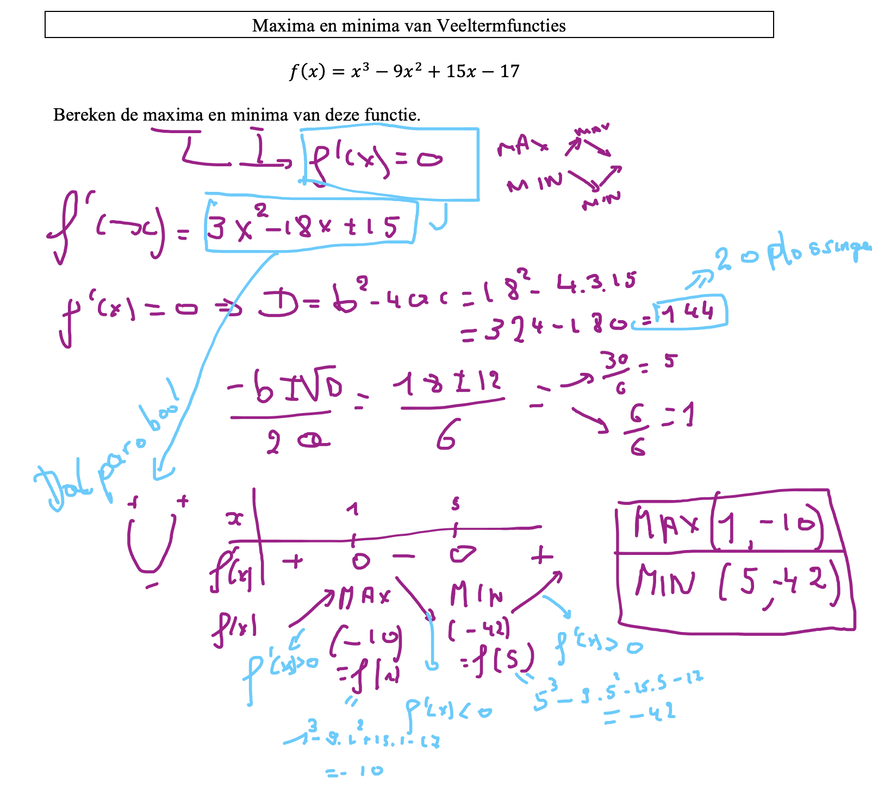 Maxima en minima van Veeltermfuncties
f(x) = x³ − 9x² + 15x − 17
Bereken de maxima en minima van deze functie.
f'(x) = 0
MAX
MAX
MIN
MIN
f'(x) = 3x² − 18x + 15
2 oplossingen
f'(x) = 0 ⇒ D = b² − 4ac = 18² − 4.3.15
= 324 − 180 = 144
−b ± √D / 2a = 18 ± 12 / 6 = → 30/6 = 5
→ 6/6 = 1
Dal parabool
+ +
−
x 1 5
f'(x) + 0 − 0 +
f(x) MAX MIN
(−10) (−42)
= f(1) = f(5)
f'(x)>0 f'(x)<0 f'(x)>0
1³ − 9.1² + 15.1 − 17
= −10
5³ − 9.5² − 15.5 − 17
= −42
MAX (1, −10)
MIN (5, −42)